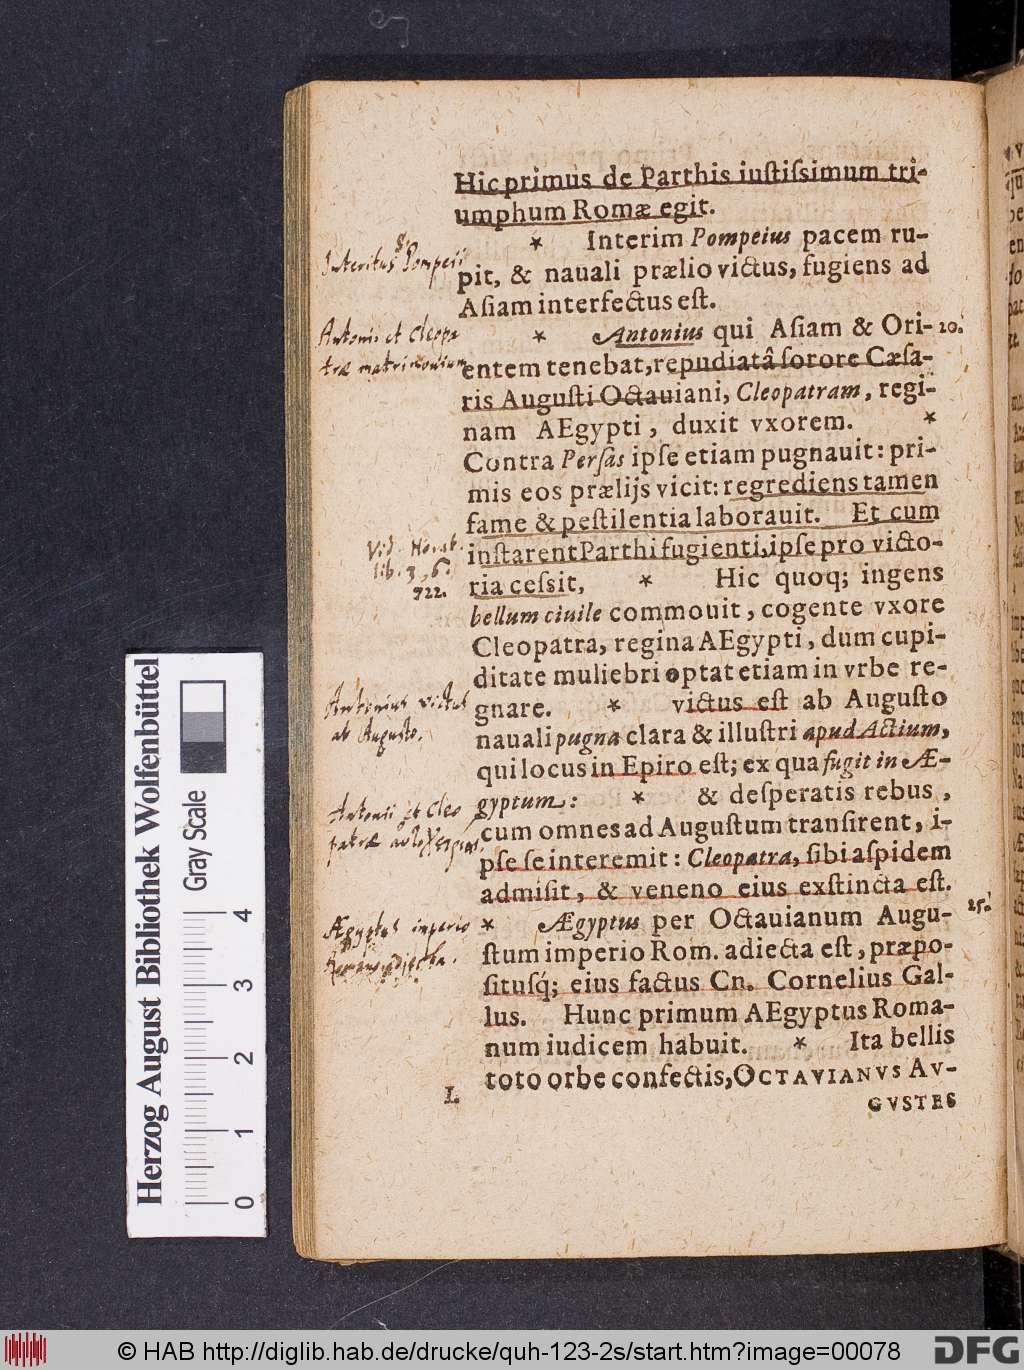 Hic primus de Parthis iustiſsimum tri-
umphum Romæ egit.
* Interim Pompeius pacem ru-
pit, & nauali prælio victus, fugiens ad
Aſiam interfectus eſt.
* Antonius qui Aſiam & Ori-
entem tenebat, repudiatâ ſorore Cæſa-
ris Auguſti Octauiani, Cleopatram, regi-
nam AEgypti, duxit vxorem. *
Contra Perſas ipſe etiam pugnauit: pri-
mis eos prælijs vicit: regrediens tamen
fame & peſtilentia laborauit. Et cum
inſtarent Parthi fugienti, ipſe pro victo-
ria ceſsit, * Hic quoq; ingens
bellum ciuile commouit, cogente vxore
Cleopatra, regina AEgypti, dum cupi-
ditate muliebri optat etiam in vrbe re-
gnare. * victus eſt ab Auguſto
nauali pugna clara & illuſtri apud Actium,
qui locus in Epiro eſt; ex qua fugit in Æ-
gyptum: * & deſperatis rebus,
cum omnes ad Auguſtum tranſirent, i-
pſe ſe interemit: Cleopatra, ſibi aſpidem
admiſit, & veneno eius exſtincta eſt.
* Ægyptus per Octauianum Augu-
ſtum imperio Rom. adiecta eſt, præpo-
ſituſq́; eius factus Cn. Cornelius Gal-
lus. Hunc primum AEgyptus Roma-
num iudicem habuit. * Ita bellis
toto orbe confectis, OCTAVIANVS AV-
GVSTES
Interitus Pompeii
Antonii et Cleopa
træ matrimonium
20.
Vid. Horat.
lib. 3, 6.
922.
Antonius victus
ab Augusto.
Antonii et Cleo
patræ
Ægyptus imperio
25.
I.
Herzog August Bibliothek Wolfenbüttel
Gray Scale
0 1 2 3 4
© HAB http://diglib.hab.de/drucke/quh-123-2s/start.htm?image=00078
DFG